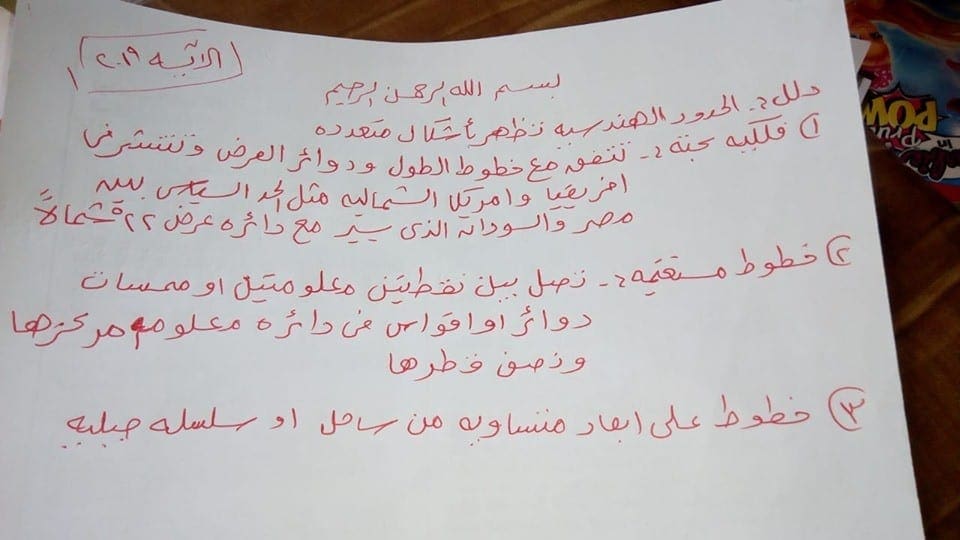 الآتيه ٢٠١٩
بسم الله الرحمن الرحيم
دلل :- الحدود الهندسيه تظهر بأشكال متعدده
① فلكيه بحتة :- تتفق مع خطوط الطول ودوائر العرض وتنتشر فى
افريقيا وامريكا الشماليه مثل الحد السياسى بين
مصر والسودان الذى يسير مع دائره عرض ٢٢° شمالاً
② خطوط مستقيمه :- تصل بين نقطتين معلومتين او مماسات
دوائر او اقواس فى دائره معلوم مركزها
ونصف قطرها
③ خطوط على ابعاد متساويه من ساحل او سلسله جبليه
POW